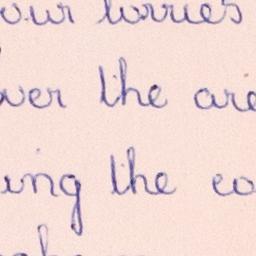 our lorries
over the are
ing the co